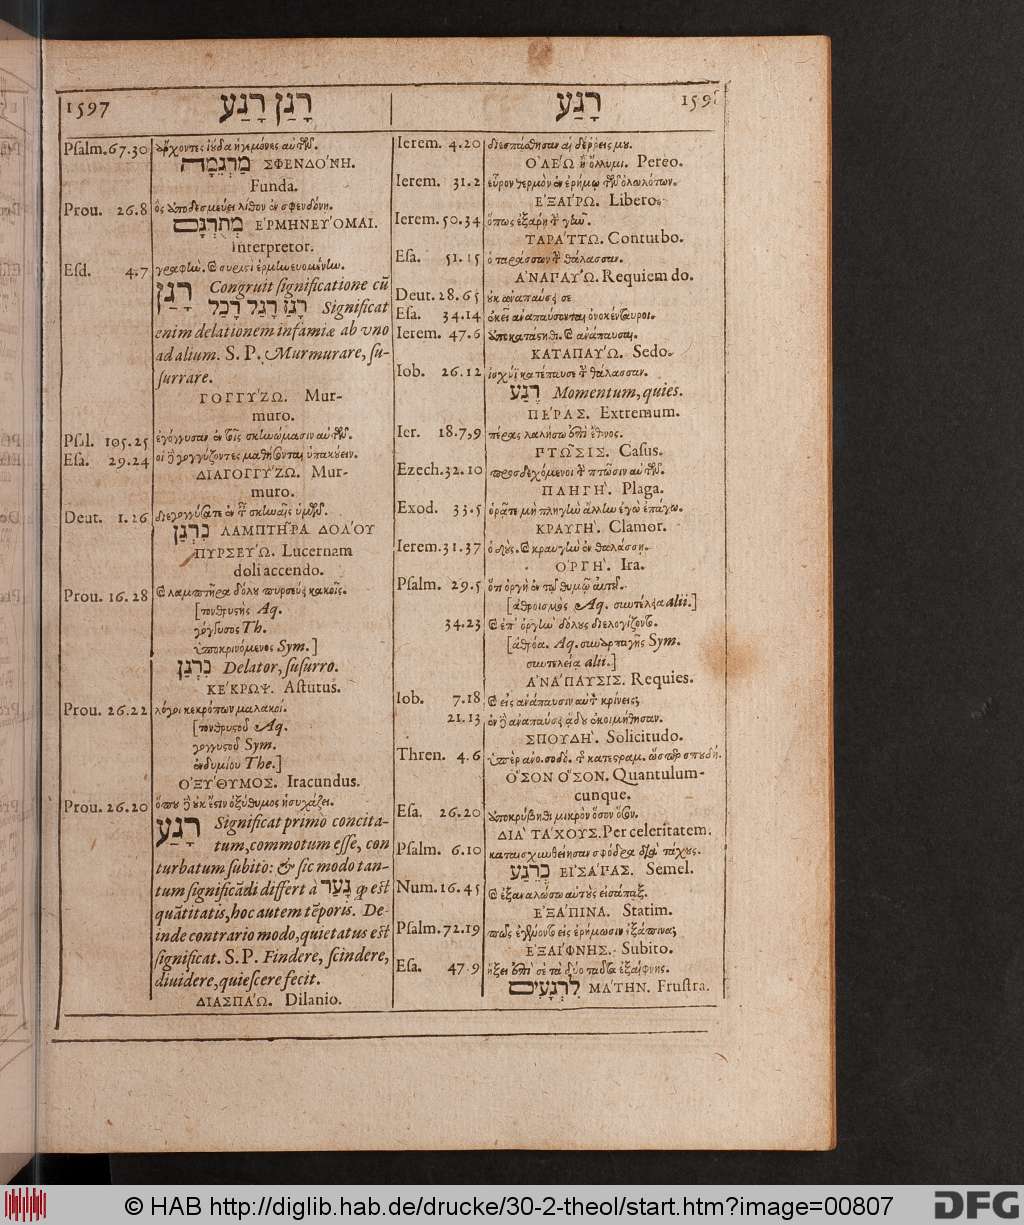 1597 רָגַן רָגַע
Psalm.67.30 ἄρχοντες ἰούδα ἡγεμόνες αὐτῶν.
מַרְגֵמָה ΣΦΕΝΔΟ΄ΝΗ.
Funda.
Prou. 26.8 ὃς ἀποδεσμεύει λίθον ἐν σφενδόνῃ.
מְתֻרְגָּם ΕΡΜΗΝΕΥ΄ΟΜΑΙ.
Interpretor.
Esd. 4.7
רָגַן Congruit significatione cũ
רָגַז רָגַל רָכַל Significat
enim delationem infamiæ ab vno
ad alium. S. P. Murmurare, su-
surrare.
ΓΟΓΓΥ΄ΖΩ. Mur-
muro.
Psal. 105.25 ἐγόγγυσαν ἐν τοῖς σκηνώμασιν αὐτῶν.
Esa. 29.24 οἱ ἢ γογγύζοντες μαθήσονται ὑπακούειν.
ΔΙΑΓΟΓΓΥ΄ΖΩ. Mur-
muro.
Deut. 1.26 διεγογγύζατε ἐν τ σκηναῖς ὑμῶν.
נִרְגָּן ΛΑΜΠΤΗ͂ΡΑ ΔΟΛ΄ΟΥ
ΠΥΡΣΕΥ΄Ω. Lucernam
doli accendo.
Prou. 16.28 καὶ λαμπτῆρα δόλου πυρσεύει κακοῖς.
[τονθρυςὴς Aq.
γόγγυσος Th.
ὑποκρινόμενος Sym.]
נִרְגָּן Delator, susurro.
ΚΕ΄ΚΡΩΨ. Astutus.
Prou. 26.22 λόγοι κεκρόπων μαλακοί.
[τονθρυςοῦ Aq.
γογγυςοῦ Sym.
ἐνδυμίου The.]
Ο᾽ΞΥ΄ΘΥΜΟΣ. Iracundus.
Prou. 26.20 ὅπου ἢ οὐκ ἔςιν ὀξύθυμος ἡσυχάζει.
רָגַע Significat primò concita-
tum, commotum esse, con
turbatum subito: & sic modo tan-
tum significãdi differt à נָעַר qꝫ est
quãtitatis, hoc autem tẽporis. De-
inde contrario modo, quietatus est
significat. S. P. Findere, scindere,
diuidere, quiescere fecit.
ΔΙΑΣΠΑ΄Ω. Dilanio.
רָגַע 159
Ierem. 4.20 διεσπάσθησαν αἱ δέῤῥεις μου.
Ο᾽ΛΕ΄Ω ἢ ὄλλυμι. Pereo.
Ierem. 31.2 εὗρον θερμὸν ἐν ἐρήμῳ τῶν ὀλωλότων.
ΕΞΑΙ΄ΡΩ. Libero.
Ierem. 50.34 ὅπως ἐξάρῃ τ γῆν.
ΤΑΡΑΤΤΩ. Conturbo.
Esa. 51.15 ὁ ταράσσων τ θάλασσαν.
ΑΝΑΠΑΥ΄Ω. Requiem do.
Deut. 28.65 οὐκ ἀναπαύσει σε
Esa. 34.14 ἐκεῖ ἀναπαύσονται ὀνοκένταυροι.
Ierem. 47.6 ἀποκατάςηθι. καὶ ἀνάπαυσαι.
ΚΑΤΑΠΑΥ΄Ω. Sedo.
Iob. 26.12 ἰσχύϊ κατέπαυσε τ θάλασσαν.
רֶגַע Momentum, quies.
ΠΕ΄ΡΑΣ. Extremum.
Ier. 18.7,9 πέρας λαλήσω ἐπὶ ἔθνος.
ΠΤΩ͂ΣΙΣ. Casus.
Ezech. 32.10 προσδεχόμενοι τ πτῶσιν αὐτῶν.
ΠΛΗΓΗ΄. Plaga.
Exod. 33.5 ὁρᾶτε μὴ πληγὴν ἄλλην ἐγὼ ἐπάγω.
ΚΡΑΥΓΗ΄. Clamor.
Ierem. 31.37 καὶ κραυγὴν ἐν θαλάσσῃ.
ΟΡΓΗ΄. Ira.
Psalm. 29.5 ὅτι ὀργὴ ἐν τῷ θυμῷ αὐτοῦ.
[ἀθροισμὸς Aq. συντέλεια alii.]
34.23 καὶ ἐπ᾽ ὀργὴν δόλους διελογίζοντο.
[ἀθρόα. Aq. συναρπαγῆς Sym.
συντελεία alii.]
ΑΝΑ΄ΠΑΥΣΙΣ. Requies.
Iob. 7.18 καὶ εἰς ἀνάπαυσιν αὐτὸν κρίνεις;
21.13 ἐν ἢ ἀναπαύσει ᾅδου ἐκοιμήθησαν.
ΣΠΟΥΔΗ΄. Solicitudo.
Thren. 4.6 ὑπὲρ ἀνο. σοδό. τ κατεςραμ. ὥσπερ σπουδῇ.
Ο῞ΣΟΝ Ο῞ΣΟΝ. Quantulum-
cunque.
Esa. 26.20 ἀποκρύβηθι μικρὸν ὅσον ὅσον.
ΔΙΑ` ΤΑ΄ΧΟΥΣ. Per celeritatem.
Psalm. 6.10 καταισχυνθείησαν σφόδρα διὰ τάχους.
כְּרֶגַע ΕΙΣΑ΄ΠΑΞ. Semel.
Num. 16.45 καὶ ἐξαναλώσω αὐτοὺς εἰσάπαξ.
ΕΞΑΠΙΝΑ. Statim.
Psalm. 72.19 πῶς ἐγένοντο εἰς ἐρήμωσιν ἐξάπινα;
ΕΞΑΙ΄ΦΝΗΣ. Subito.
Esa. 47.9 ἥξει ἐπὶ σὲ τὰ δύο ταῦτα ἐξαίφνης.
לִרְגָעִים ΜΑ΄ΤΗΝ. Frustra.
© HAB http://diglib.hab.de/drucke/30-2-theol/start.htm?image=00807
DFG